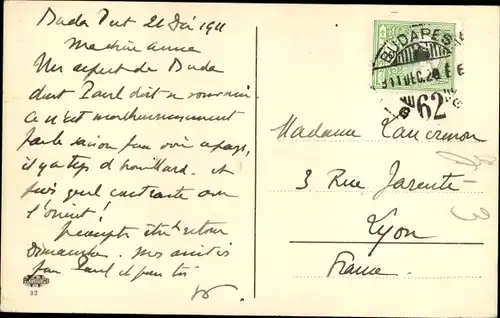 Buda Pest 21 Déc 1911
Ma chère amie
Un aspect de Buda
dont Paul doit se souvenir
Ce n'est malheureusement
pas la saison pour voir ce pays,
il y a trop de brouillard. et
puis quel contraste avec
l'Orient!
J'accepte être retour
dimanche. Mes amitiés
pour Paul et pour toi
BUDAPEST
911 DEC. 2
62
Madame
3 Rue Jarente
Lyon
France
32